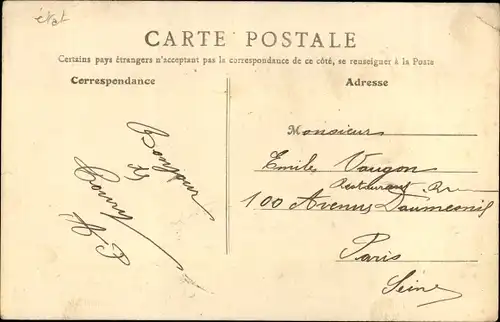 état
CARTE POSTALE
Certains pays étrangers n'acceptant pas la correspondance de ce côté, se renseigner à la Poste
Correspondance
Adresse
Bonjour
Monsieur
Emile Vaugon
Restaurant
100 Avenue Daumesnil
Paris
Seine